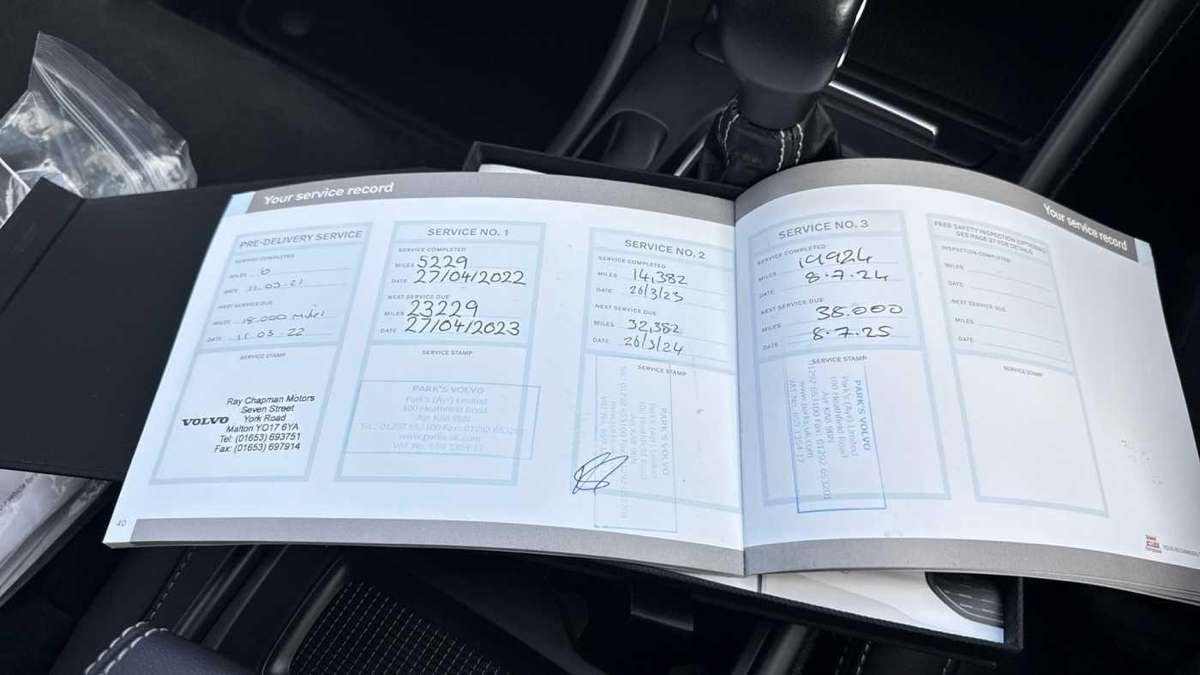 Your service record
PRE-DELIVERY SERVICE
SERVICE COMPLETED
MILES 6
DATE 11.03.21
NEXT SERVICE DUE
MILES 18.000 miles
DATE 11 03 22
SERVICE STAMP
VOLVO
Ray Chapman Motors
Seven Street
York Road
Malton YO17 6YA
Tel: (01653) 693751
Fax: (01653) 697914
40
SERVICE NO. 1
SERVICE COMPLETED
MILES 5229
DATE 27/04/2022
NEXT SERVICE DUE
MILES 23229
DATE 27/04/2023
SERVICE STAMP
PARK'S VOLVO
Park's (Ayr) Limited
100 Heathfield Road
Ayr KA8 9DN
www.parks.uk.com
SERVICE NO. 2
SERVICE COMPLETED
MILES 14,382
DATE 26/3/23
NEXT SERVICE DUE
MILES 32,382
DATE 26/3/24
SERVICE STAMP
PARK'S VOLVO
Your service record
SERVICE NO. 3
SERVICE COMPLETED
MILES 19924
DATE 8.7.24
NEXT SERVICE DUE
MILES 38.000
DATE 8.7.25
SERVICE STAMP
PARK'S VOLVO
Park's (Ayr) Limited
100 Heathfield Road
Ayr KA8 9DN
www.parks.uk.com
FREE SAFETY INSPECTION (OPTIONAL)
SEE PAGE 37 FOR DETAILS
INSPECTION COMPLETED
MILES
DATE
NEXT SERVICE DUE
MILES
DATE
SERVICE STAMP